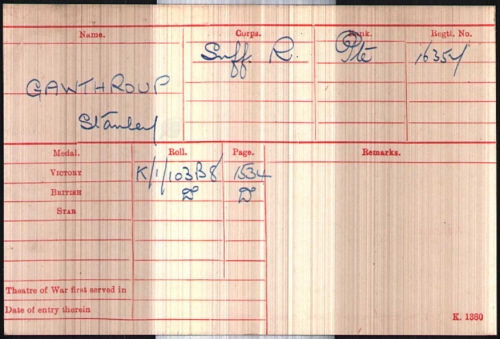 Name. Corps. Rank. Regtl. No.
Suff. R. Pte 16354
GAWTHROUP
Stanley
Medal. Roll. Page. Remarks.
VICTORY K/1/103B8 1534
BRITISH D° D°
STAR
Theatre of War first served in
Date of entry therein
K. 1380